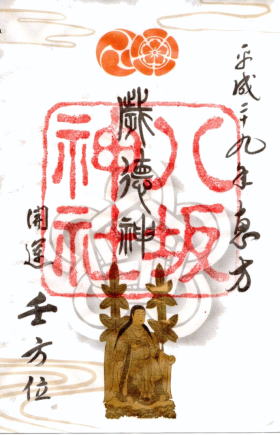 平成二十九年恵方
八坂
神社
歳徳神
開運
壬方位